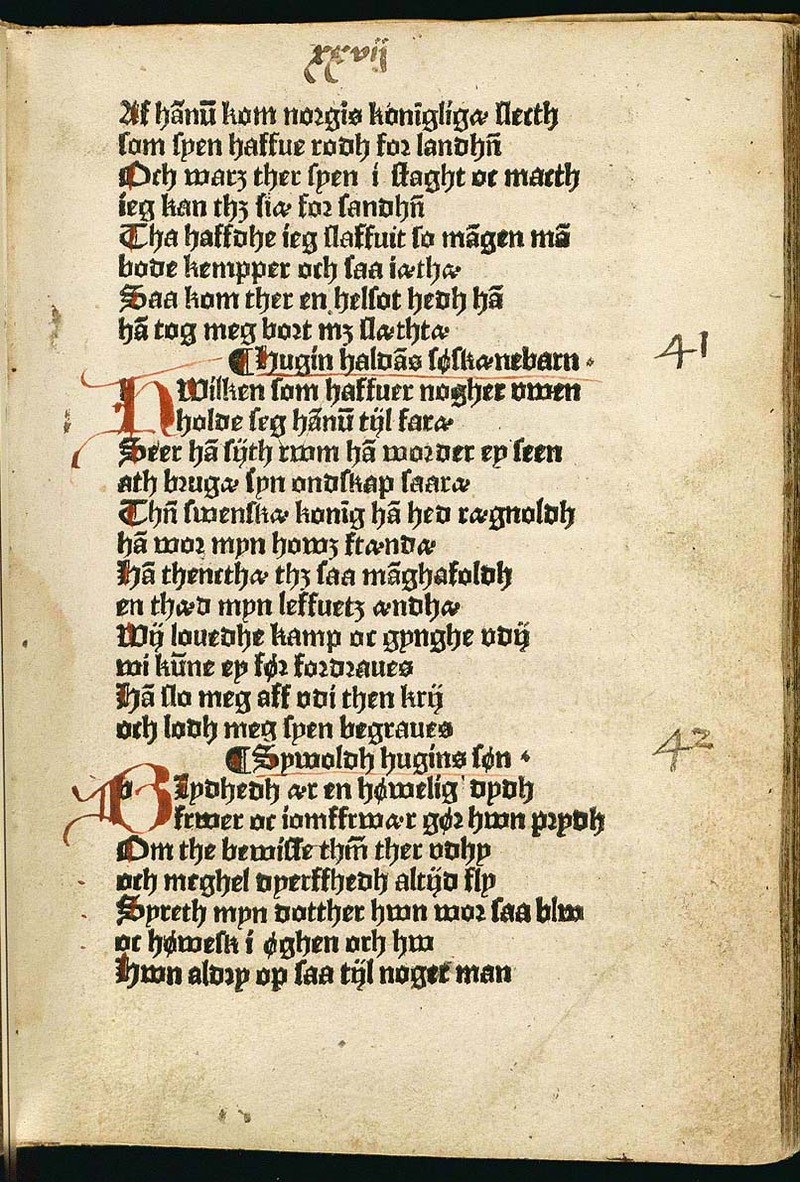 xxvij
Af hãnũ kom norgis konĩgligæ slecth
som syen haffue rodh for landhñ
Och warꝫ ther syen i slaght oc macth
ieg kan thꝫ siæ for sandhñ
Tha haffdhe ieg slaffuit so mãgen mã
bode kempper och saa iæthæ
Saa kom ther en helsot hedh hã
hã tog meg bort mꝫ slæthtæ
¶Hugin haldãs søskænebarn.
HWilken som haffuer nogher vwen
holde seg hãnũ tijl faræ
Seer hã sijth rwm hã worder ey seen
ath brugæ syn ondskap saaræ
Thñ swenskæ konĩg hã hed rægnoldh
hã wor myn howꝫ frændæ
Hã thencthæ thꝫ saa mãghafoldh
en thæd myn leffuetz ændhæ
Wij louedhe kamp oc gynghe vdij
wi kũne ey før fordraues
Hã slo meg aff vdi then krij
och lodh meg syen begraues
¶Sywoldh hugins søn.
BLydhedh ær en høwelig dydh
frwer oc iomffrwær gør hwn prydh
Om the bewisse thm̃ ther vdhy
och meghel dyerffhedh altijd fly
Syreth myn dotther hwn wor saa blw
oc høwesk i øghen och hw
Hwn aldry op saa tijl noger man
41
42